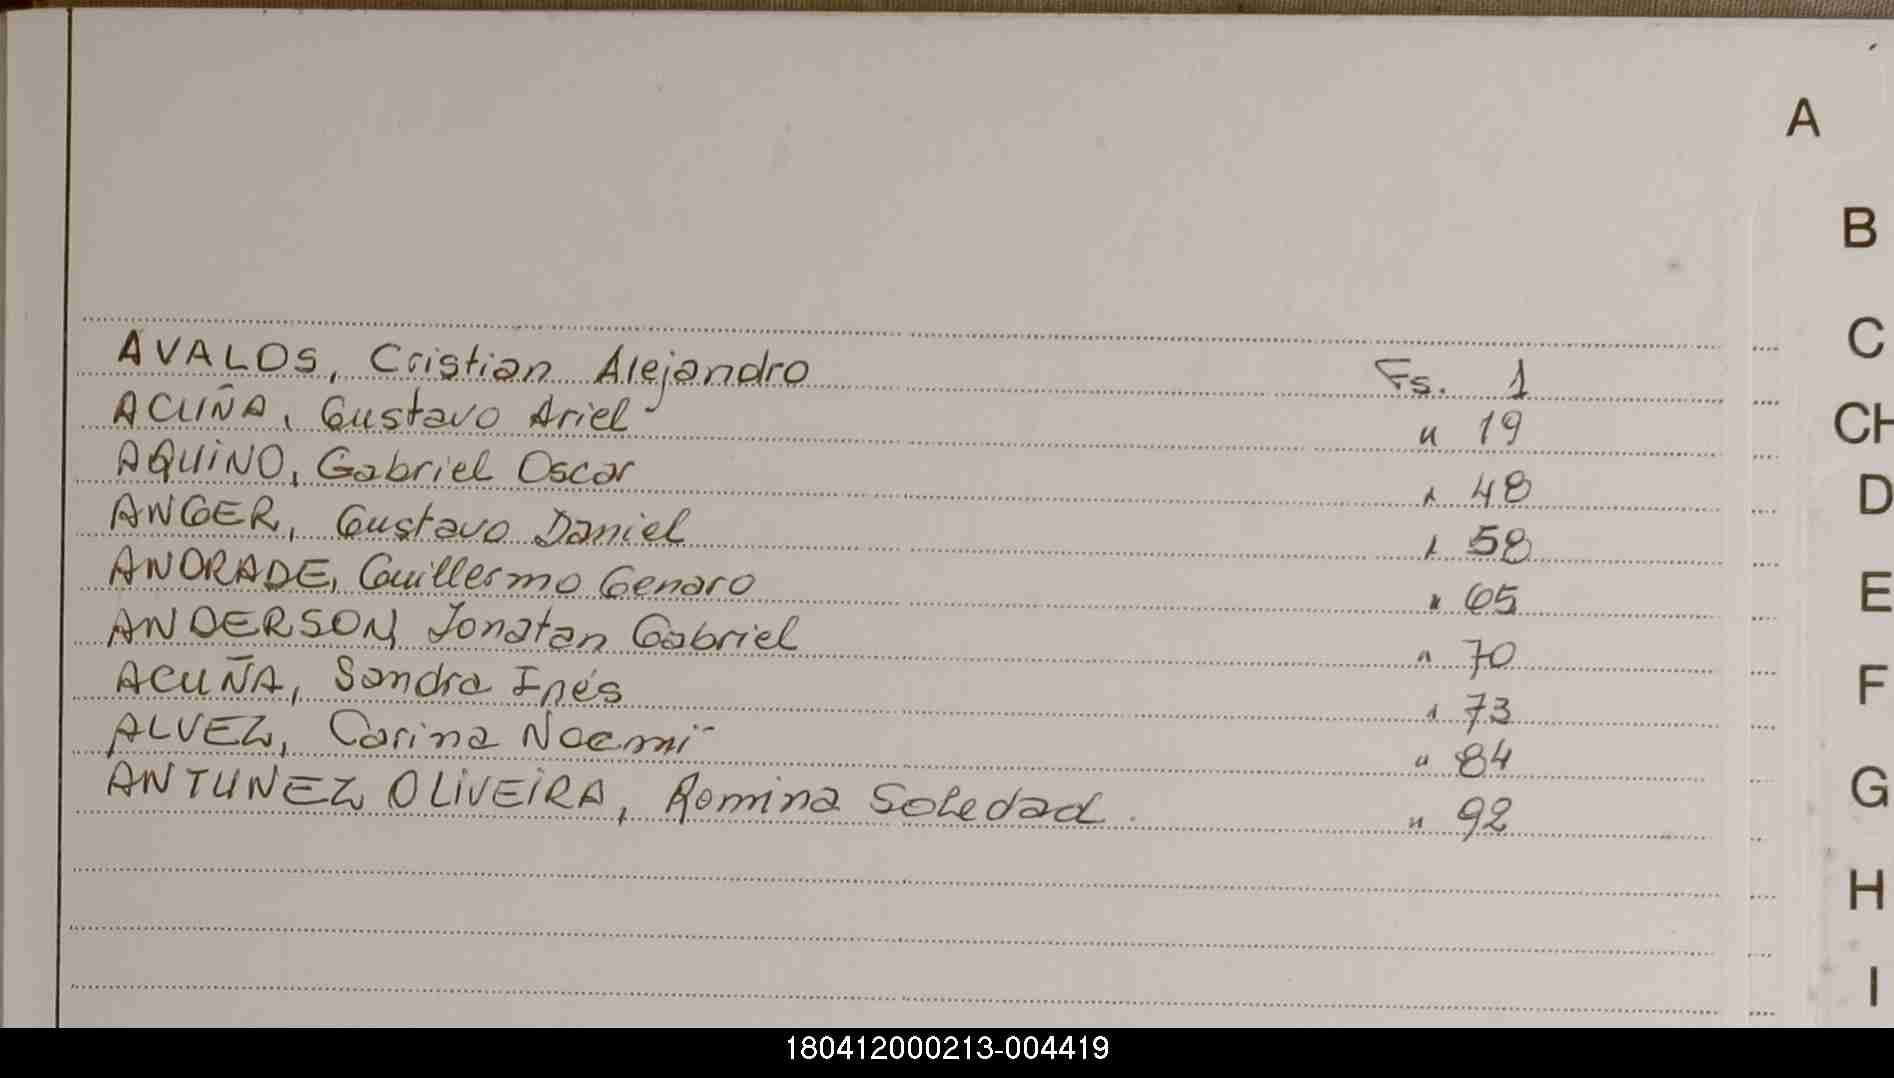 A
B
C
AVALOS, Cristian Alejandro Fs. 1
ACUÑA, Gustavo Ariel " 19
CH
AQUINO, Gabriel Oscar " 48
D
ANGER, Gustavo Daniel " 58
ANDRADE, Guillermo Genaro " 65
E
ANDERSON, Jonatan Gabriel " 70
ACUÑA, Sandra Inés " 73
F
ALVEZ, Carina Noemí " 84
ANTUNEZ OLIVEIRA, Romina Soledad. " 92
G
H
I
180412000213-004419